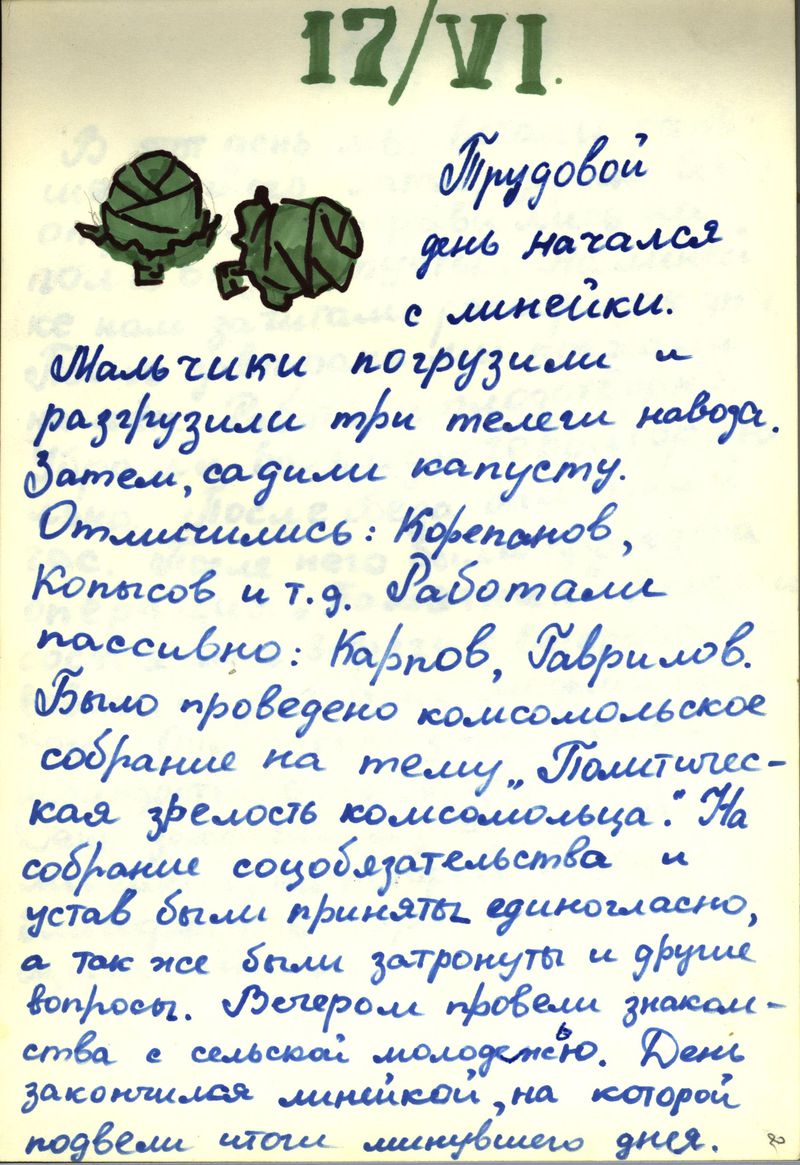 17/VI.
Трудовой
день начался
с линейки.
Мальчики погрузили и
разгрузили три телеги навоза.
Затем, садили капусту.
Отличились: Корепанов,
Копысов и т.д. Работали
пассивно: Карпов, Гаврилов.
Было проведено комсомольское
собрание на тему „Политичес-
кая зрелость комсомольца". На
собрание соцобязательства и
устав были приняты единогласно,
а так же были затронуты и другие
вопросы. Вечером провели знаком-
ства с сельской молодежью. День
закончился линейкой, на которой
подвели итоги минувшего дня.